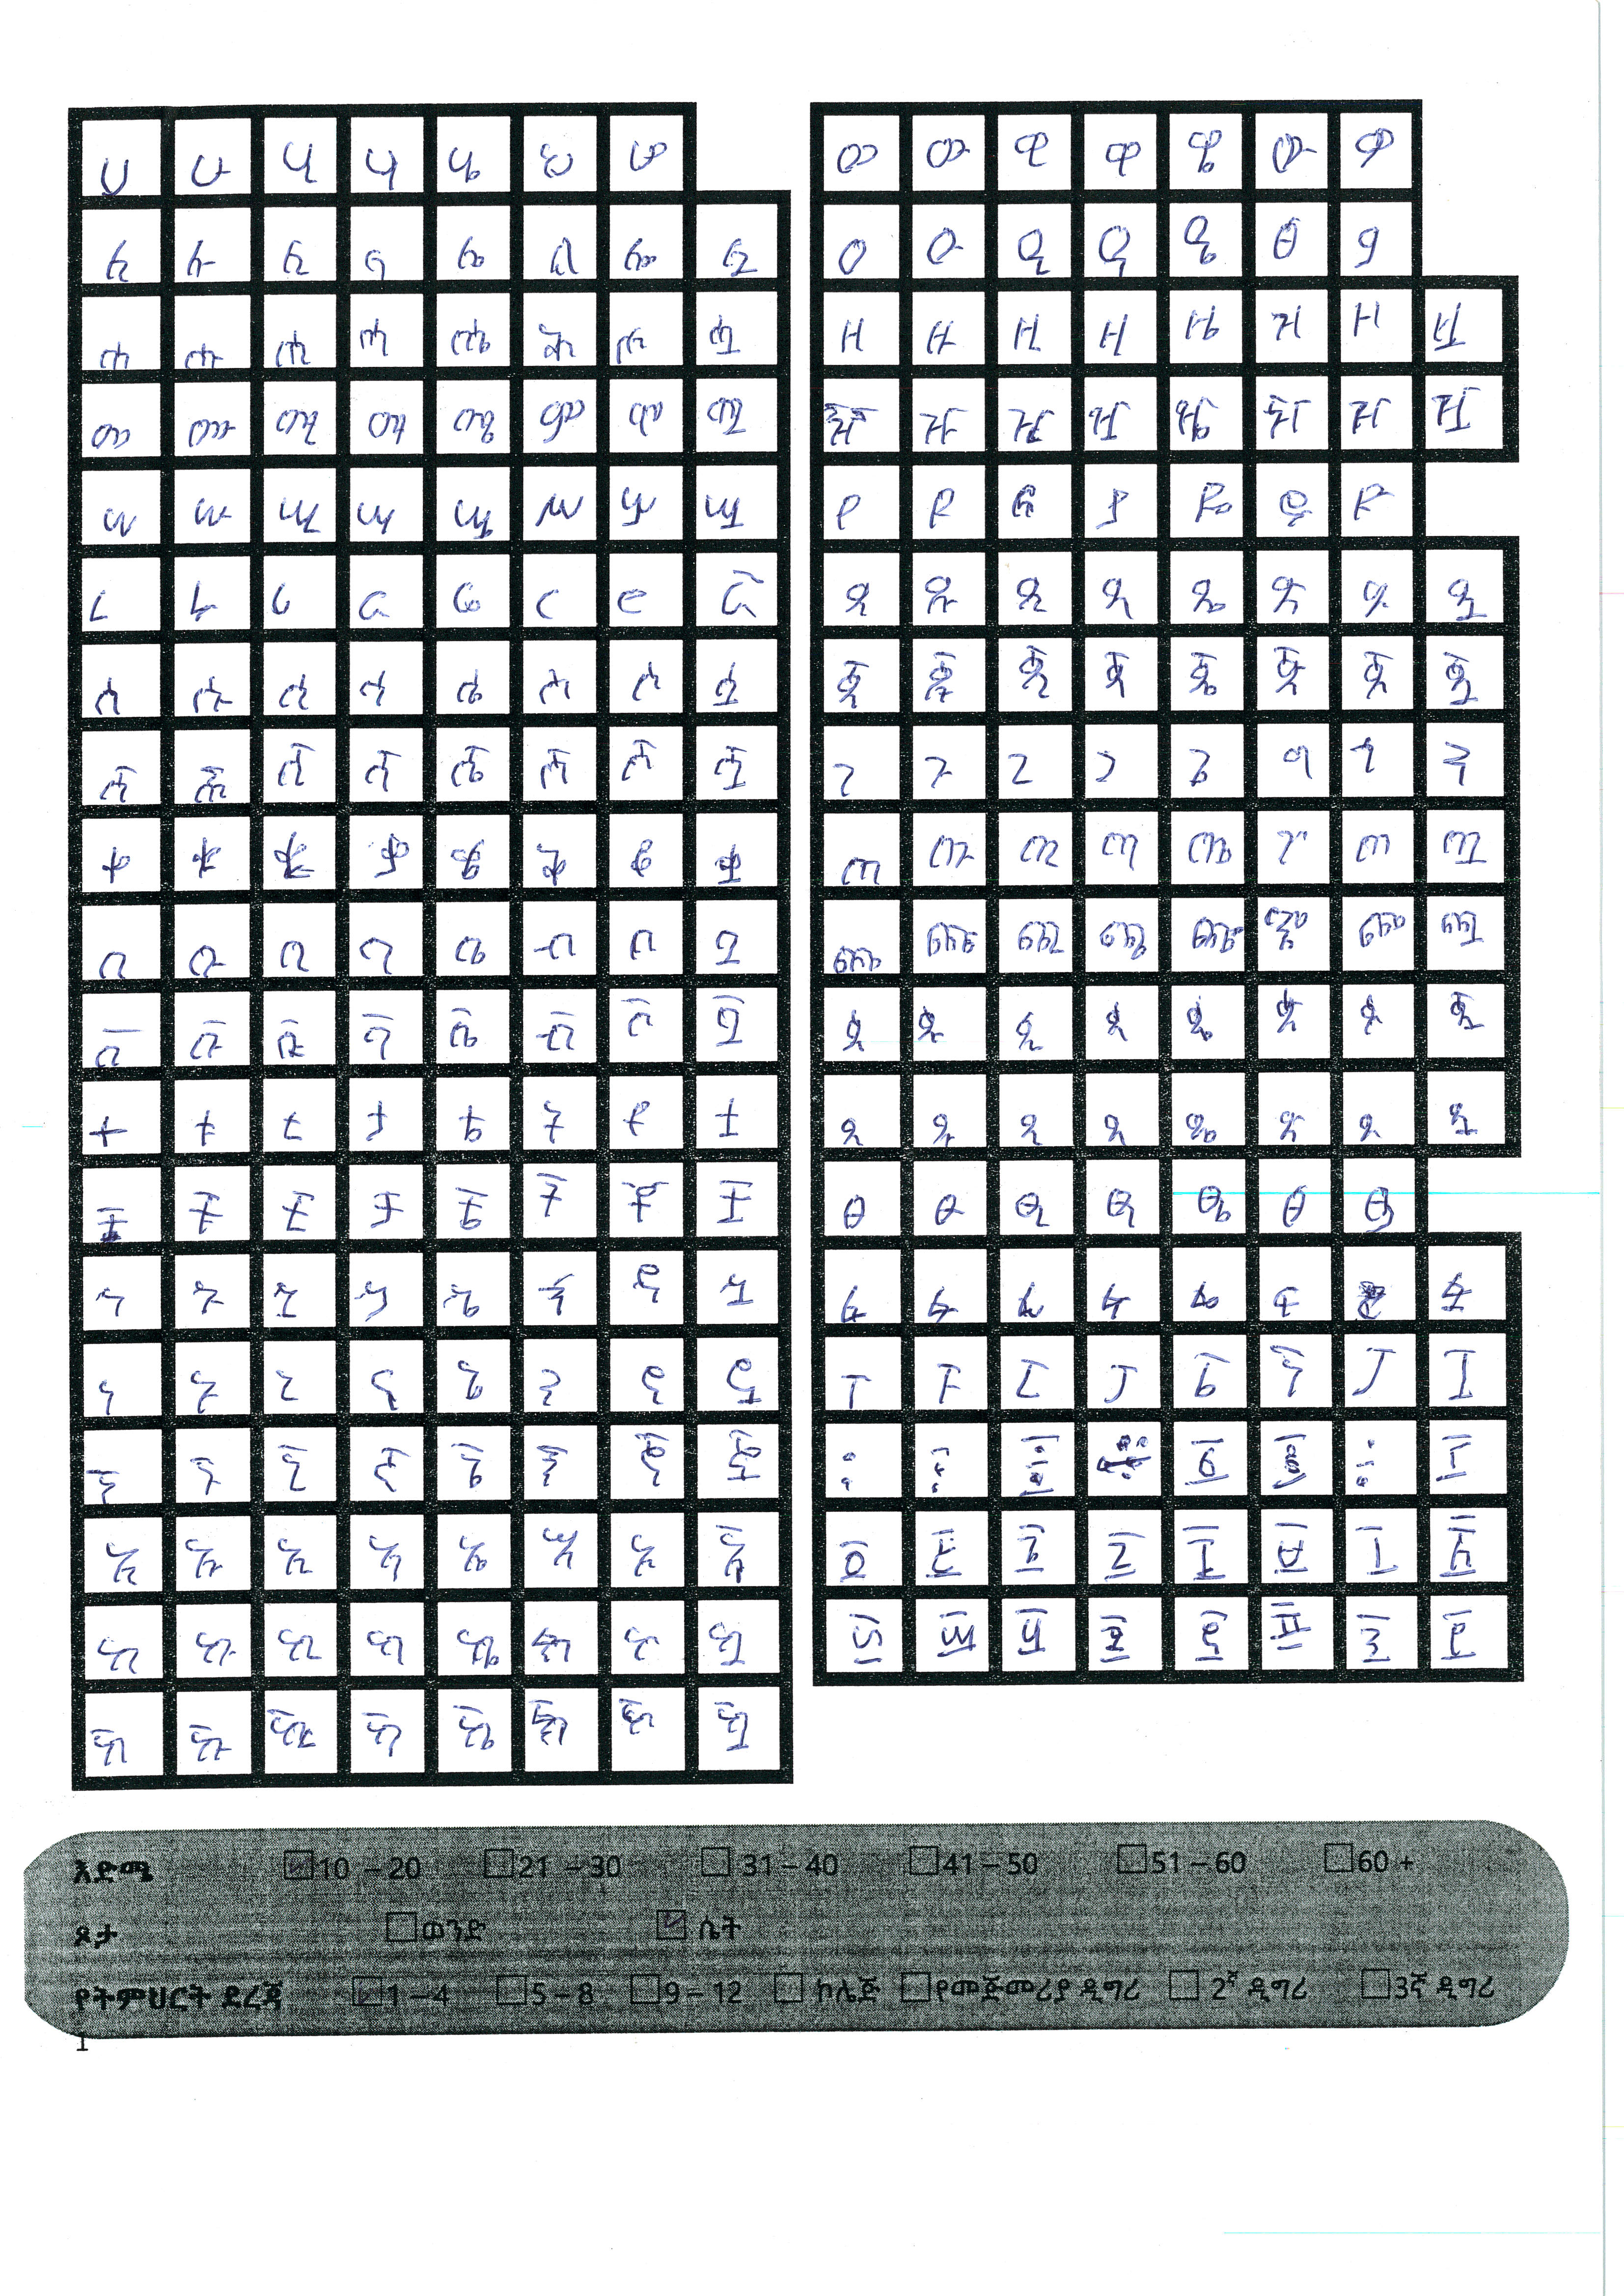 ሀ ሁ ሂ ሃ ሄ ህ ሆ
ለ ሉ ሊ ላ ሌ ል ሎ ሏ
ሐ ሑ ሒ ሓ ሔ ሕ ሖ ሗ
መ ሙ ሚ ማ ሜ ም ሞ ሟ
ሠ ሡ ሢ ሣ ሤ ሥ ሦ ሧ
ረ ሩ ሪ ራ ሬ ር ሮ ሯ
ሰ ሱ ሲ ሳ ሴ ስ ሶ ሷ
ሸ ሹ ሺ ሻ ሼ ሽ ሾ ሿ
ቀ ቁ ቂ ቃ ቄ ቅ ቆ ቋ
በ ቡ ቢ ባ ቤ ብ ቦ ቧ
ቨ ቩ ቪ ቫ ቬ ቭ ቮ ቯ
ተ ቱ ቲ ታ ቴ ት ቶ ቷ
ቸ ቹ ቺ ቻ ቼ ች ቾ ቿ
ኀ ኁ ኂ ኃ ኄ ኅ ኆ ኋ
ነ ኑ ኒ ና ኔ ን ኖ ኗ
ኘ ኙ ኚ ኛ ኜ ኝ ኞ ኟ
አ ኡ ኢ ኣ ኤ እ ኦ ኧ
ከ ኩ ኪ ካ ኬ ክ ኮ ኳ
ኸ ኹ ኺ ኻ ኼ ኽ ኾ ዃ
ወ ዉ ዊ ዋ ዌ ው ዎ
ዐ ዑ ዒ ዓ ዔ ዕ ዖ
ዘ ዙ ዚ ዛ ዜ ዝ ዞ ዟ
ዠ ዡ ዢ ዣ ዤ ዥ ዦ ዧ
የ ዩ ዪ ያ ዬ ይ ዮ
ደ ዱ ዲ ዳ ዴ ድ ዶ ዷ
ጀ ጁ ጂ ጃ ጄ ጅ ጆ ጇ
ገ ጉ ጊ ጋ ጌ ግ ጎ ጓ
ጠ ጡ ጢ ጣ ጤ ጥ ጦ ጧ
ጨ ጩ ጪ ጫ ጬ ጭ ጮ ጯ
ጰ ጱ ጲ ጳ ጴ ጵ ጶ ጷ
ጸ ጹ ጺ ጻ ጼ ጽ ጾ ጿ
ፀ ፁ ፂ ፃ ፄ ፅ ፆ
ፈ ፉ ፊ ፋ ፌ ፍ ፏ
ፐ ፑ ፒ ፓ ፔ ፕ ፖ ፗ
፩ ፪ ፫ ፬ ፭ ፮ ፯ ፰
፱ ፲ ፳ ፴ ፵ ፶ ፷ ፸
እድሜ 10 – 20 21 – 30 31 – 40 41 – 50 51 – 60 60 +
ጾታ ወንድ ሴት
የትምህርት ደረጃ 1 – 4 5 – 8 9 – 12 ኮሌጅ የመጀመሪያ ዲግሪ 2ኛ ዲግሪ 3ኛ ዲግሪ
1